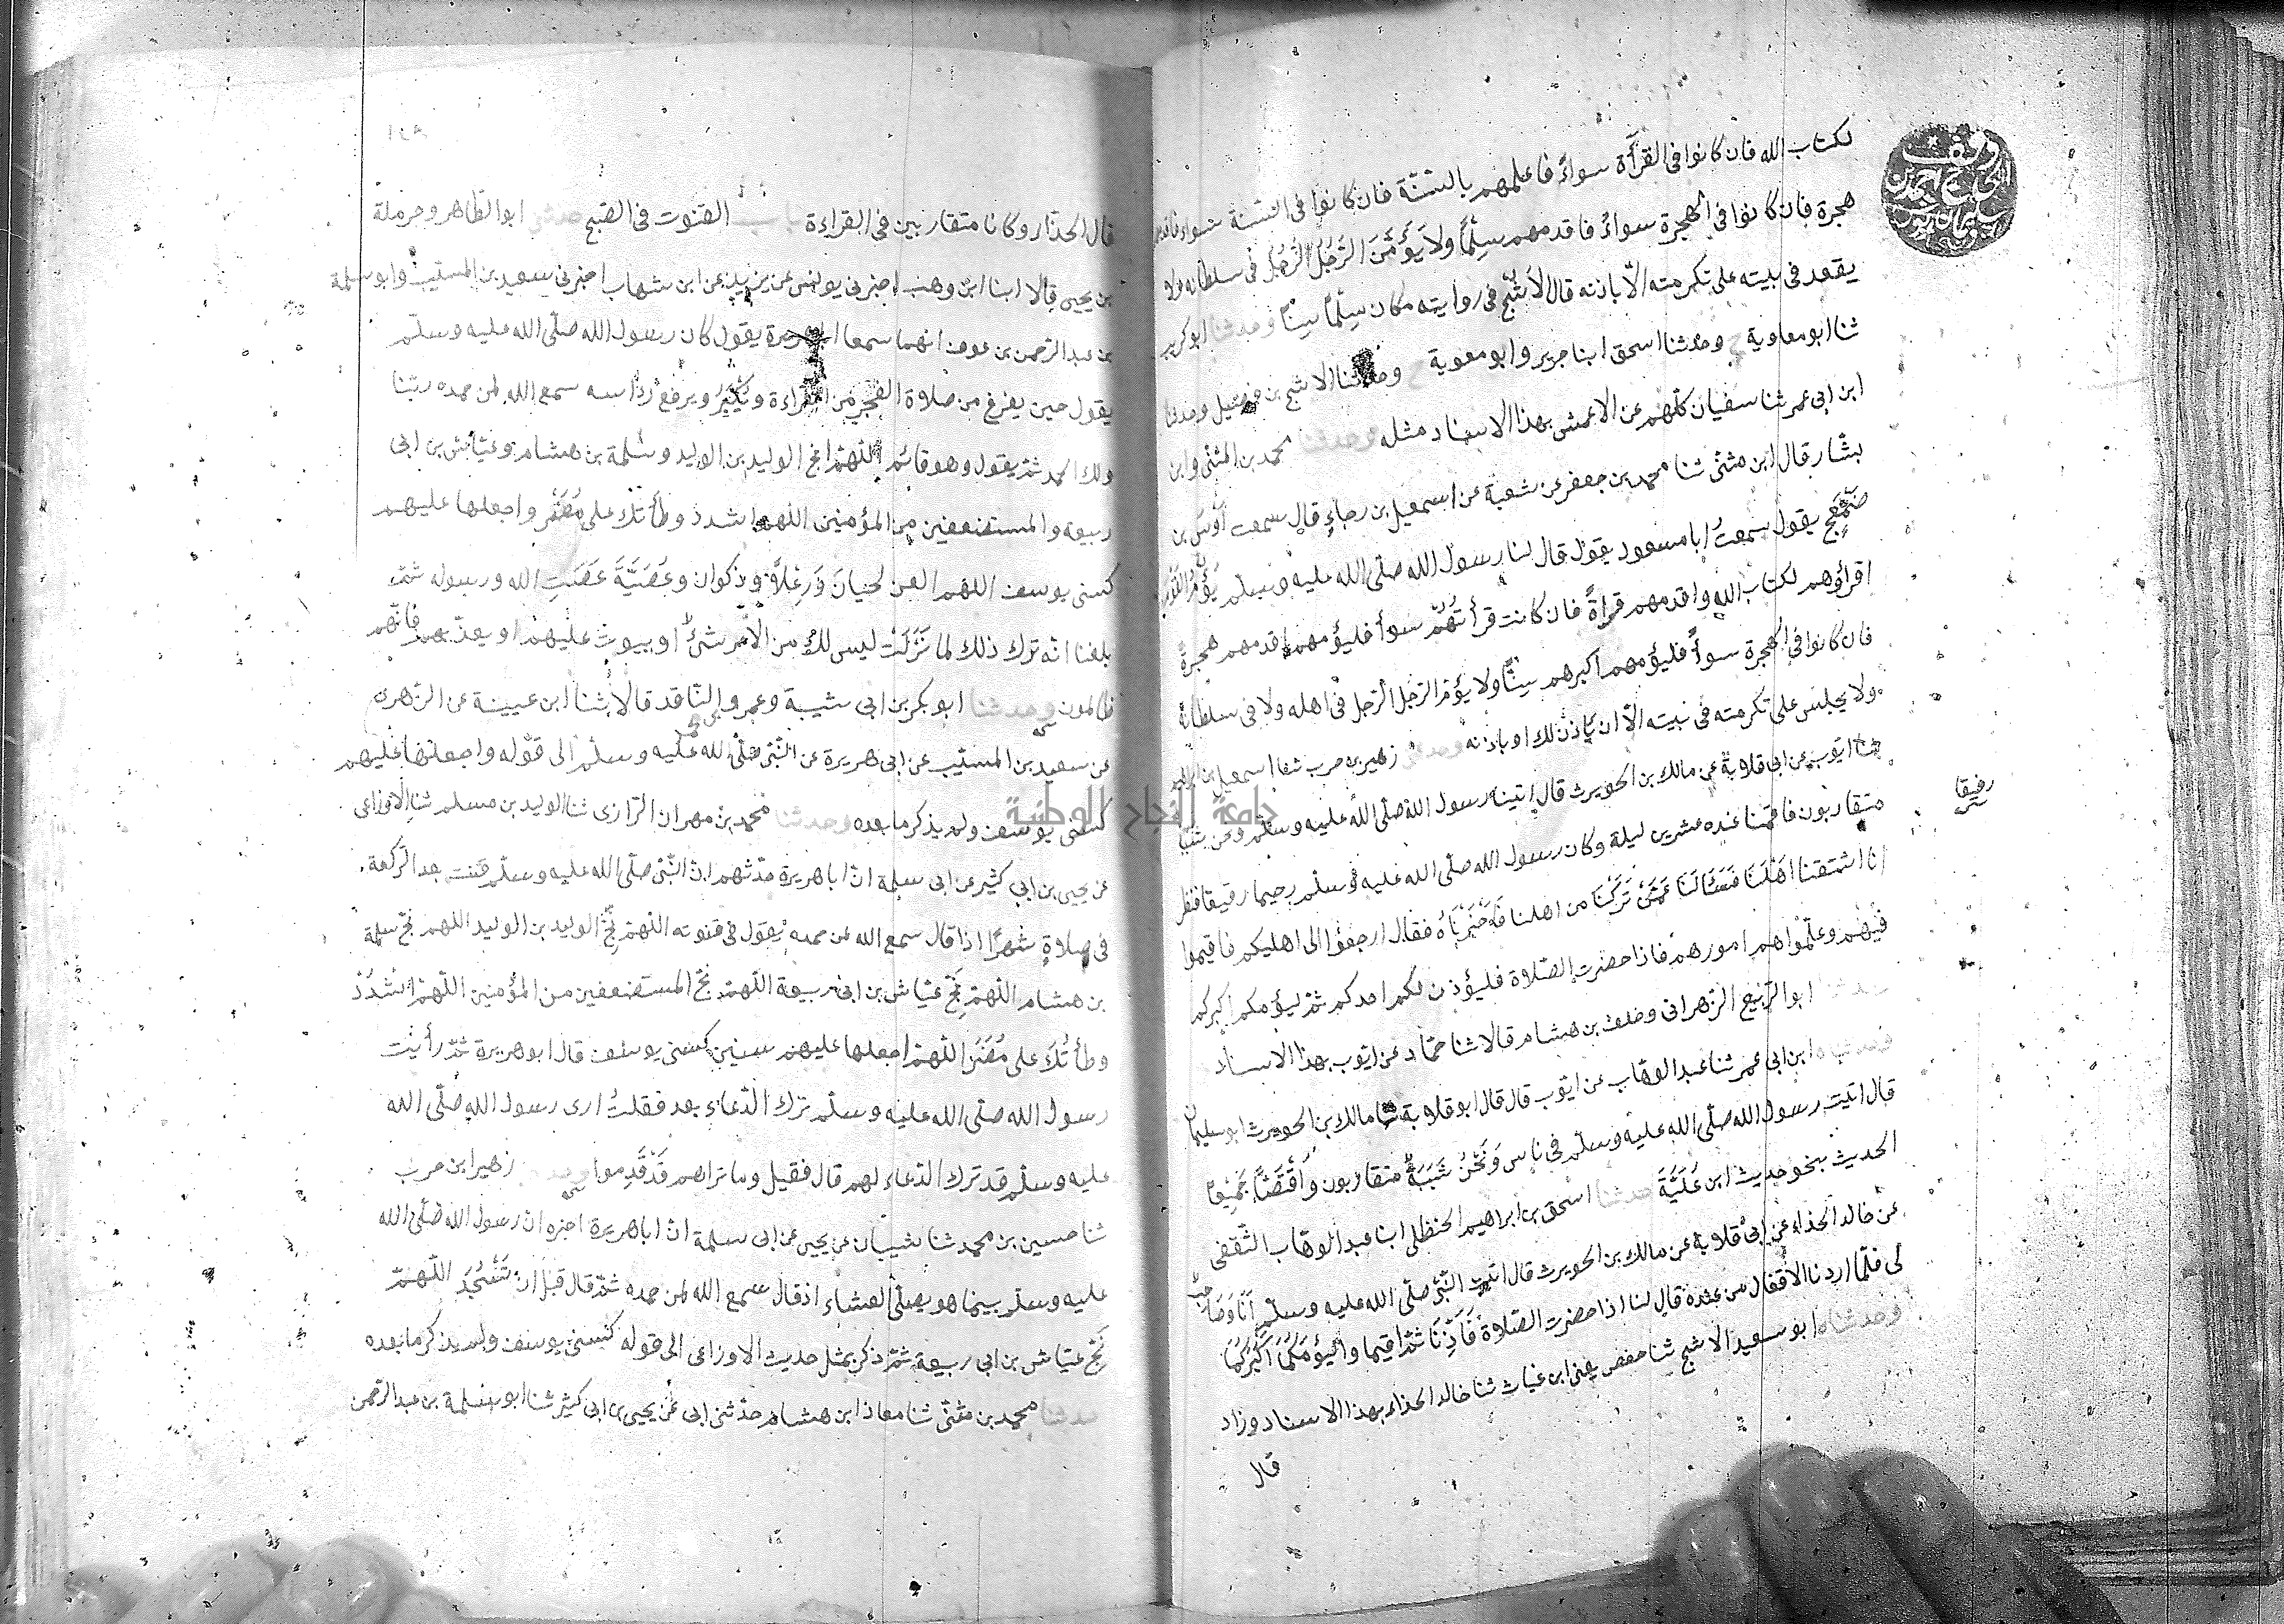 لكتاب الله فان كانوا في القرآة سواءً فاعلمهم بالسنّة فان كانوا في السنة سواء فاقدمهم
هجرة فان كانوا في الهجرة سواءً فاقدمهم سِلْمًا ولا يَؤُمَّنَ الرَّجُلُ الرَّجُلَ في سلطانه ولا
يقعد في بيته على تكرمته الّا باذنه قال الأشَجّ في روايته مكان سِلْمًا سِنًّا وحدثنا ابو كريب
ثنا ابو معاوية ح وحدثنا اسحق ابنا جرير وابو معوية ح وحدثنا الاشج بن فضيل وحدثنا
ابن ابى عمر ثنا سفيان كلّهم عن الاعمش بهذا الاسناد مثله وحدثنا محمد بن المثنى وابن
بشّار قال ابن مثنى ثنا محمد بن جعفر عن شعبة عن اسمعيل بن رجاءٍ قال سمعت أوس بن
ضَمْعَج يقول سمعتُ ابا مسعود يقول قال لنا رسول الله صلّى الله عليه وسلم يَؤُمُّ القوم
اقرأؤهم لكتاب الله واقدمهم قراةً فان كانت قرأتُهُمْ سواً فليؤمهم اقدمهم هجرةً
فان كانوا في الهجرة سواً فليؤمهم اكبرهم سِنًّا ولا يؤمّ الرّجل الرّجل في اهله ولا في سلطانه
ولا يجلس على تكرمته في بيته الّا ان يَاذن لك او باذنه وحدثني زهير بن حرب ثنا اسمعيل بن ابرهيم
ثنا ايّوب عن ابى قلابةَ عن مالك بن الحويرث قال اتينا رسول الله صلّى الله عليه وسلّم ونحن شببة
متقاربون فاقمنا عنده عشرين ليلة وكان رسول الله صلّى الله عليه وسلّم رحيما رقيقا فظن
رفيقا
انا اشتقنا اَهْلَنَا فَسَئَالَنَا عَمَّنْ تَرَكْنَا من اهلنا فَاَخْبَرْنَاهُ فقال ارجعوا الى اهليكم فاقيموا
فيهم وعلّمواهم امورهم فاذا حضرت الصّلاة فليؤذن لكم احدكم ثمّ ليؤمكم اكبركم
وحدثنا ابو الرّبيع الزّهرانى وخلف بن هشام قالا ثنا حمّاد عن ايّوب بهذا الاسناد
وحدثناه ابن ابى عمر ثنا عبد الوهّاب عن ايّوب قال قال ابو قلابة ثنا مالك بن الحويرث ابو سليمان
قال اتيت رسول الله صلّى الله عليه وسلّم في ناس وَنَحْنُ شَبَبَةٌ متقاربون وَاقْتَصَّا جَمِيْعًا
الحديث بنحو حديث ابن عُلَيَّةَ حدثنا اسحق بن ابراهيم الحنظلى ابنا عبد الوهّاب الثّقفى
عن خالد الحذاء عن ابى قلابة عن مالك بن الحويرث قال اتيت النّبىّ صلّى الله عليه وسلّم اَنَا وَصَاحِبٌ
لى فلمّا اردنا الأقفال من عنده قال لنا اذا حضرت الصّلاة فَاَذِّنَا ثمّ اقيما وليؤمّكُمَا اَكْبَرُكُمَا
وحدثناه ابو سعيد الاشج ثنا حفص يعنى ابن غياث ثنا خالد الحذاء بهذا الاسناد وزاد
قال
قال الحذّاء وكانا متقاربين في القراءة باب القنوت في الصّبح حدثنى ابو الطّاهر وحرملة
بن يحيى قالا ابنا ابن وهب اخبرنى يونس عن يزيد عن ابن شهاب اخبرنى سعيد بن المسيّب وابو سلمة
بن عبد الرّحمن بن عوف انهما سمعا ابا هريرة يقول كان رسول الله صلّى الله عليه وسلّم
يقول حين يفرغ من صلاة الفجر من القراءة ويُكَبِّرُ ويرفع رأسه سمع الله لمن حمده ربّنا
ولك الحمد ثمّ يقول وهو قائم اللّهمّ انج الوليد بن الوليد وسلمة بن هشام وعيّاش بن ابى
ربيعة والمستضعفين من المؤمنين اللّهمّ اشدد وطأتك على مُضَرَ واجعلها عليهم
كسنى يوسف اللّهمّ العن لحيانَ وَرِعْلاً وذكوان وعُصَيَّةَ عَصَتِ الله ورسوله ثمّ
بلغنا انّه ترك ذلك لما نَزَلَتْ ليس لك من الأمر شئٌ او يتوب عليهم او يعذّبهم فانّهم
ظالمون وحدثنا ابو بكر بن ابى شيبة وعمرو النّاقد قالا ثنا ابن عيينة عن الزّهرى
عن سعيد بن المسيّب عن ابى هريرة عن النّبىّ صلّى الله عليه وسلّم الى قوله واجعلها عليهم
كسنى يوسف ولم يذكر ما بعده وحدثنا محمد بن مهران الرّازى ثنا الوليد بن مسلم ثنا الاوزاعى
عن يحيى بن ابى كثير عن ابى سلمة انّ ابا هريرة حدّثهم انّ النّبىّ صلّى الله عليه وسلّم قنت بعد الرّكعة
في صلاةٍ شهرًا اذا قال سمع الله لمن حمده يقول في قنوته اللّهمّ نَجِّ الوليد بن الوليد اللهم نجّ سلمة
بن هشام اللّهمّ نَجِّ عيّاش بن ابى ربيعة اللّهمّ نجّ المستضعفين من المؤمنين اللّهمّ اشْدُدْ
وطأتُكَ على مُضَرَ اللّهمّ اجعلها عليهم سنين كسنى يوسف قال ابو هريرة ثمّ رأيت
رسول الله صلّى الله عليه وسلّم ترك الدّعاء بعد فقلتُ ارى رسول الله صلّى الله
عليه وسلّم قد ترك الدّعاء لهم قال فقيل وما تراهم قَدْ قَدِموا وحدثنى زهير ابن حرب
ثنا حسين بن محمد ثنا شيبان عن يحيى عن ابى سلمة انّ ابا هريرة اخبره انّ رسول الله صلّى الله
عليه وسلّم بينما هو يصلّى العشاء اذ قال سمع الله لمن حمده ثمّ قال قبل ان يَسْجُدَ اللّهمّ
نَجِّ عيّاش بن ابى ربيعة ثمّ ذكر بمثل حديث الاوزاعى الى قوله كسنى يوسف ولم يذكر ما بعده
حدثنا محمد بن مثنّى ثنا معاذ ابن هشام حدّثنى ابى عن يحيى بن ابى كثير ثنا ابو سلمة بن عبد الرّحمن
جامعة النجاح الوطنية